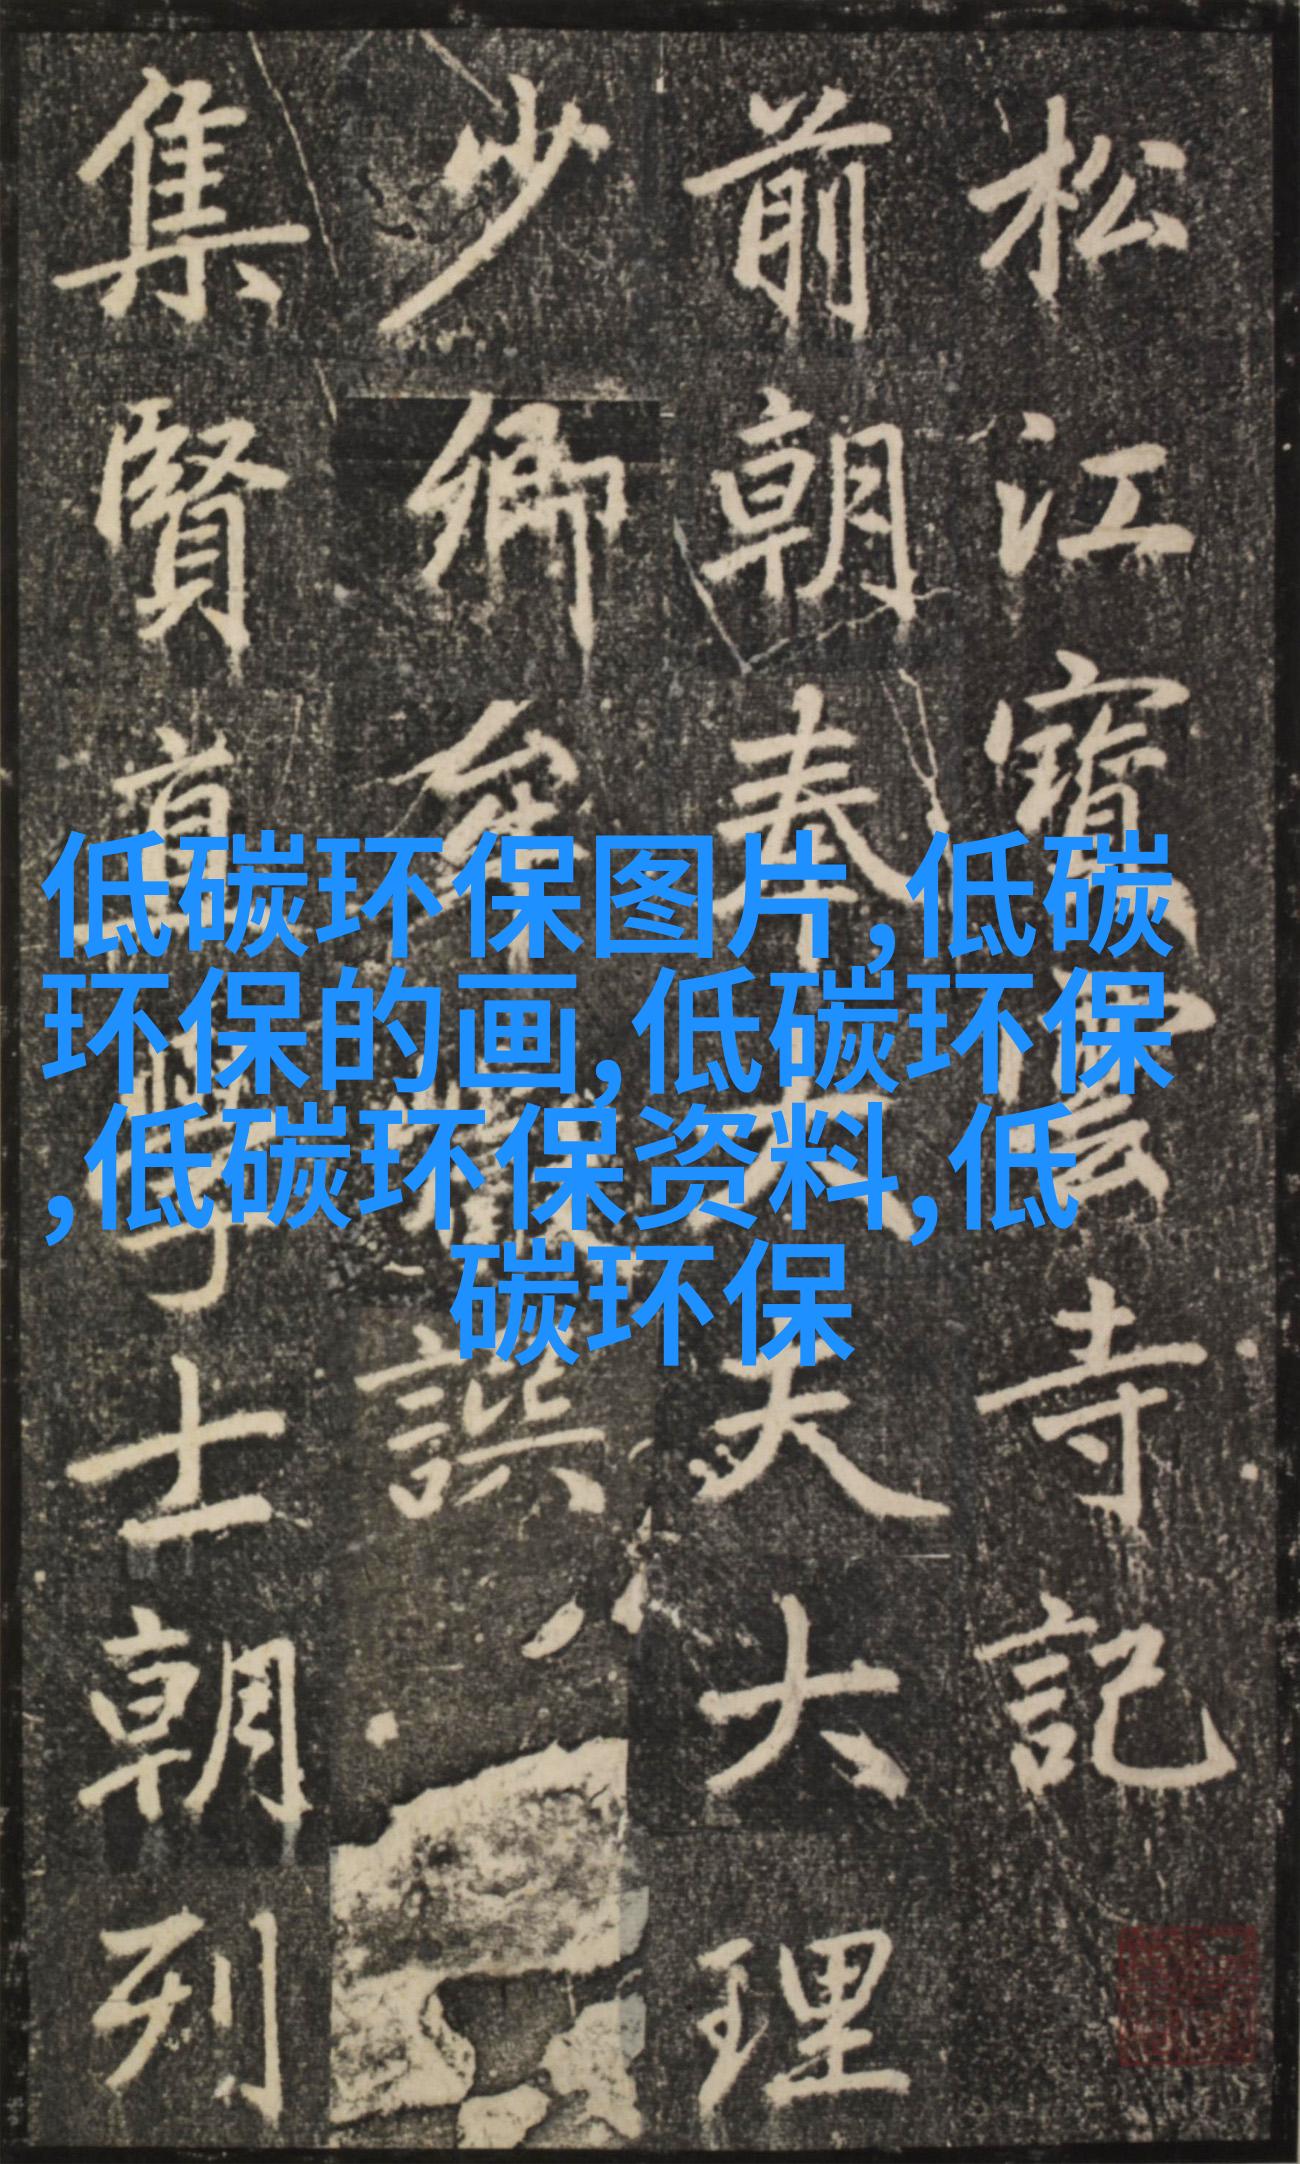 松江寶雲寺記
前朝奉大夫大理
少卿牟譔
集賢直學士朝列
低碳环保图片,低碳
环保的画,低碳环保
,低碳环保资料,低
碳环保